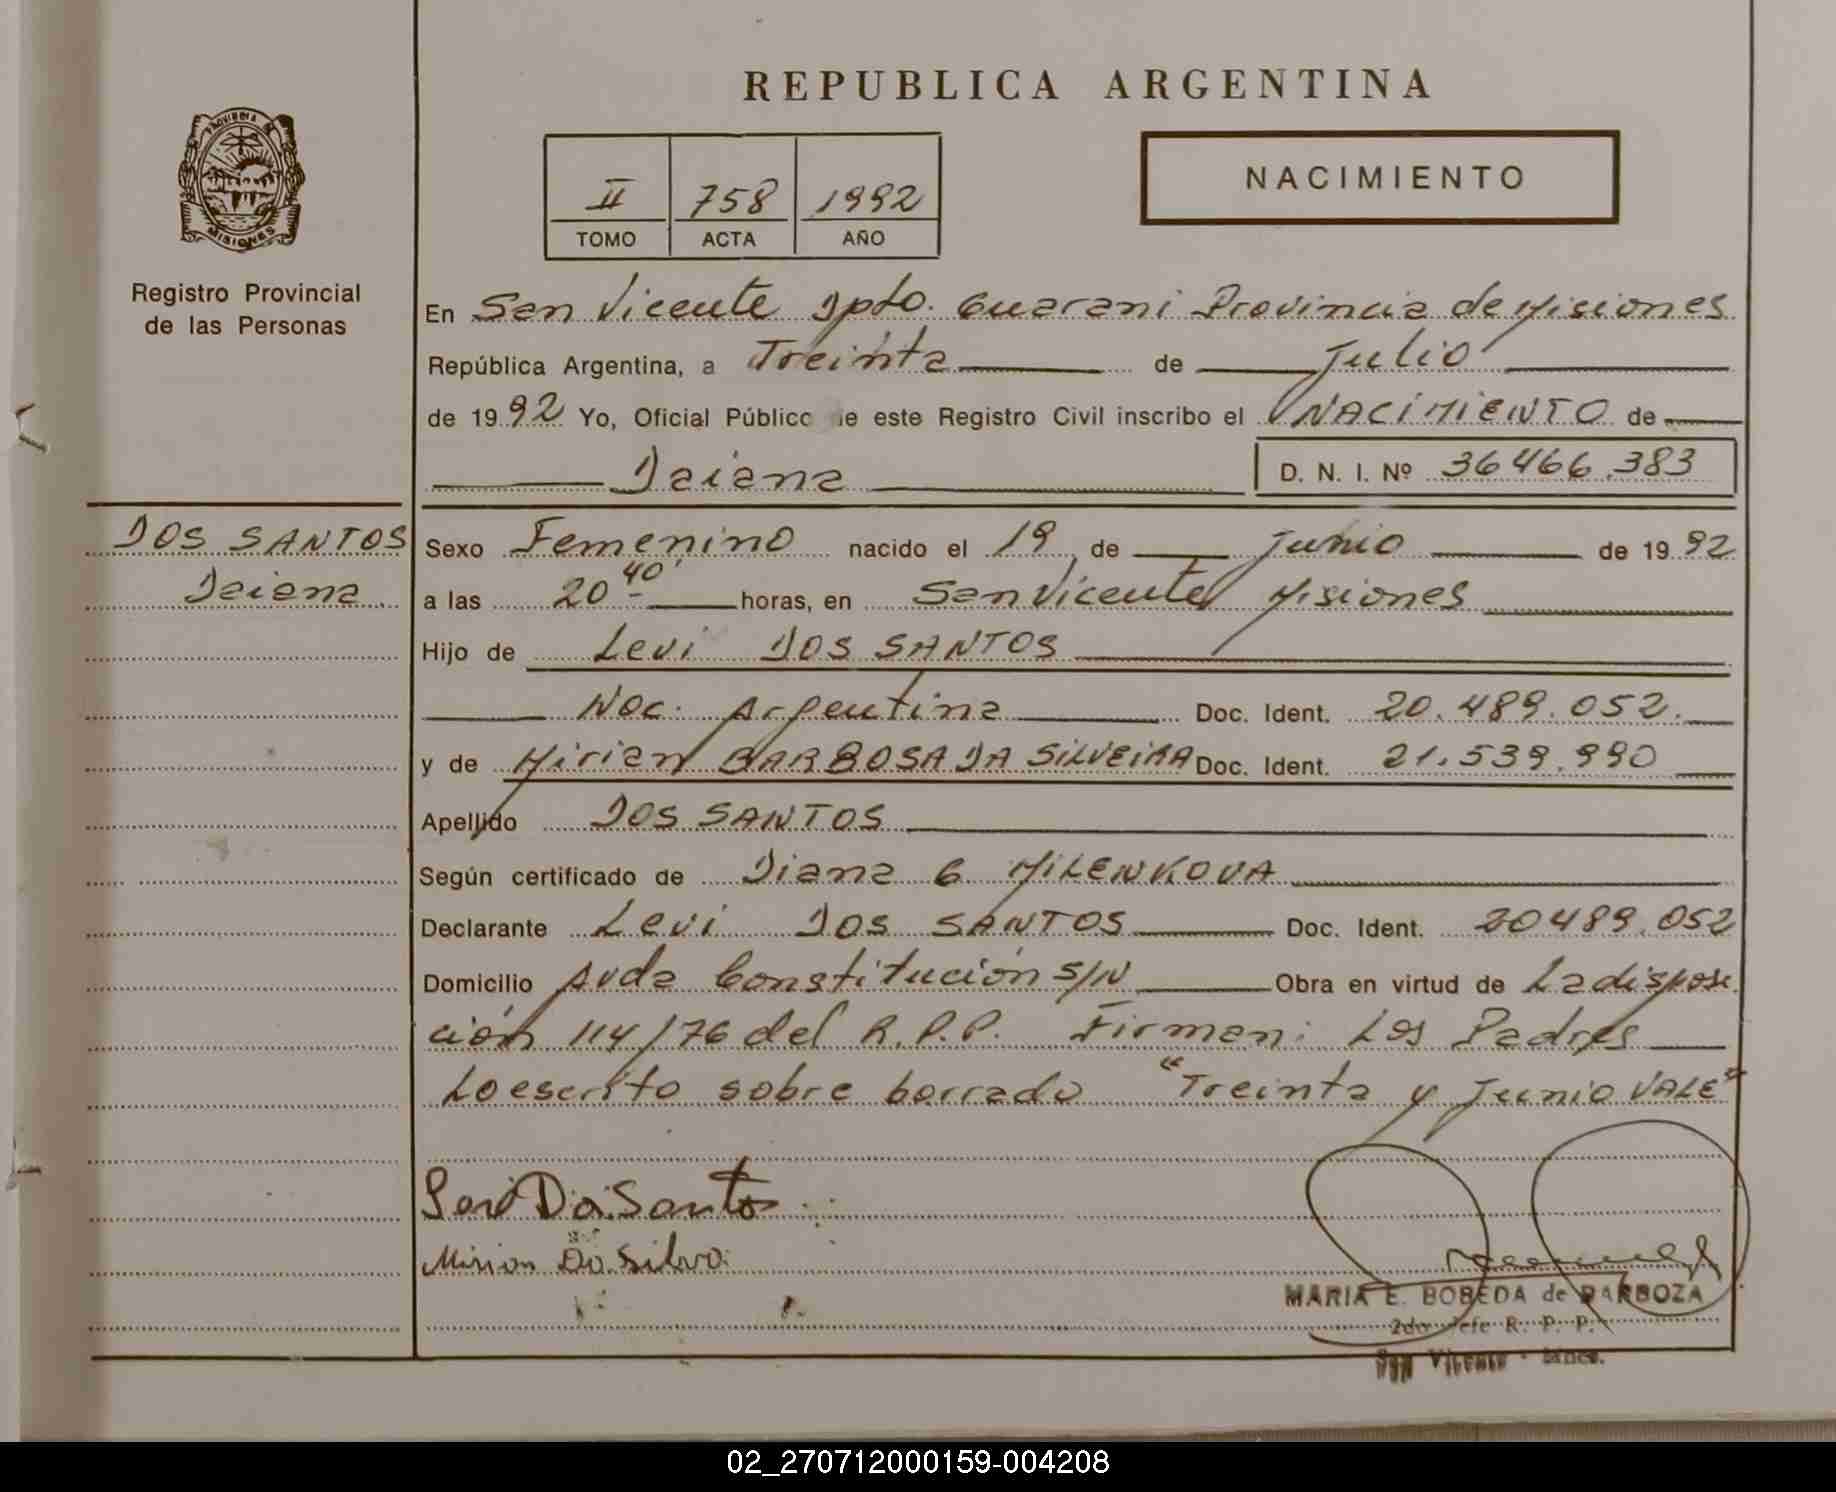 REPUBLICA ARGENTINA
PROVINCIA DE
MISIONES
Registro Provincial
de las Personas
II 758 1992
TOMO ACTA AÑO
NACIMIENTO
En San Vicente Dpto. Guarani Provincia de Misiones
República Argentina, a Treinta de Julio
de 1992 Yo, Oficial Público de este Registro Civil inscribo el NACIMIENTO de
Daiana D. N. I. Nº 36466.383
DOS SANTOS
Daiana
Sexo Femenino nacido el 19 de Junio de 1992
a las 20 40' horas, en San Vicente Misiones
Hijo de Levi DOS SANTOS
Nac. Argentina Doc. Ident. 20.489.052.
y de Mirian BARBOSA DA SILVEIRA Doc. Ident. 21.539.990
Apellido DOS SANTOS
Según certificado de Diana G MILENKOVA
Declarante Levi DOS SANTOS Doc. Ident. 20489.052
Domicilio Avda Constitución S/N Obra en virtud de La disposi
ción 114/76 del R.P.P. Firman: Los Padres
Lo escrito sobre borrado "Treinta y Junio VALE"
Santos
Mirian Da Silva
MARIA E. BOBEDA de BARBOZA
2do Jefe R. P. P.
San Vicente - Mnes.
02_270712000159-004208